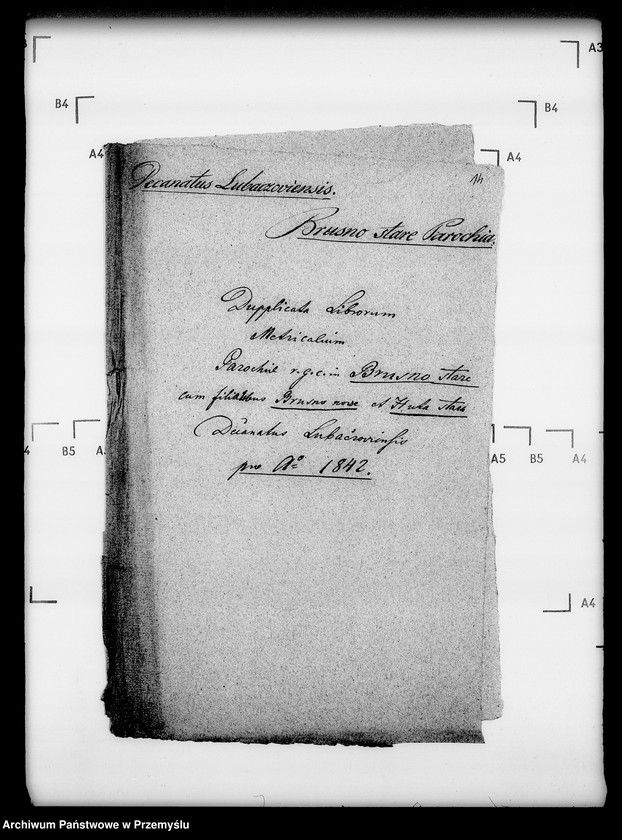 A3
B4 B4
A4 A4
14
Decanatus Lubaczoviensis.
Brusno stare Parochia.
Dupplicata Librorum
Metricalium
Parochiæ r. g. c. in Brusno stare
cum filiabus Brusno nowe et Huta stara
Dēanatus Lubačzoviensis
pro Aº 1842.
4 B5 A A5 B5 A4
A4
Archiwum Państwowe w Przemyślu